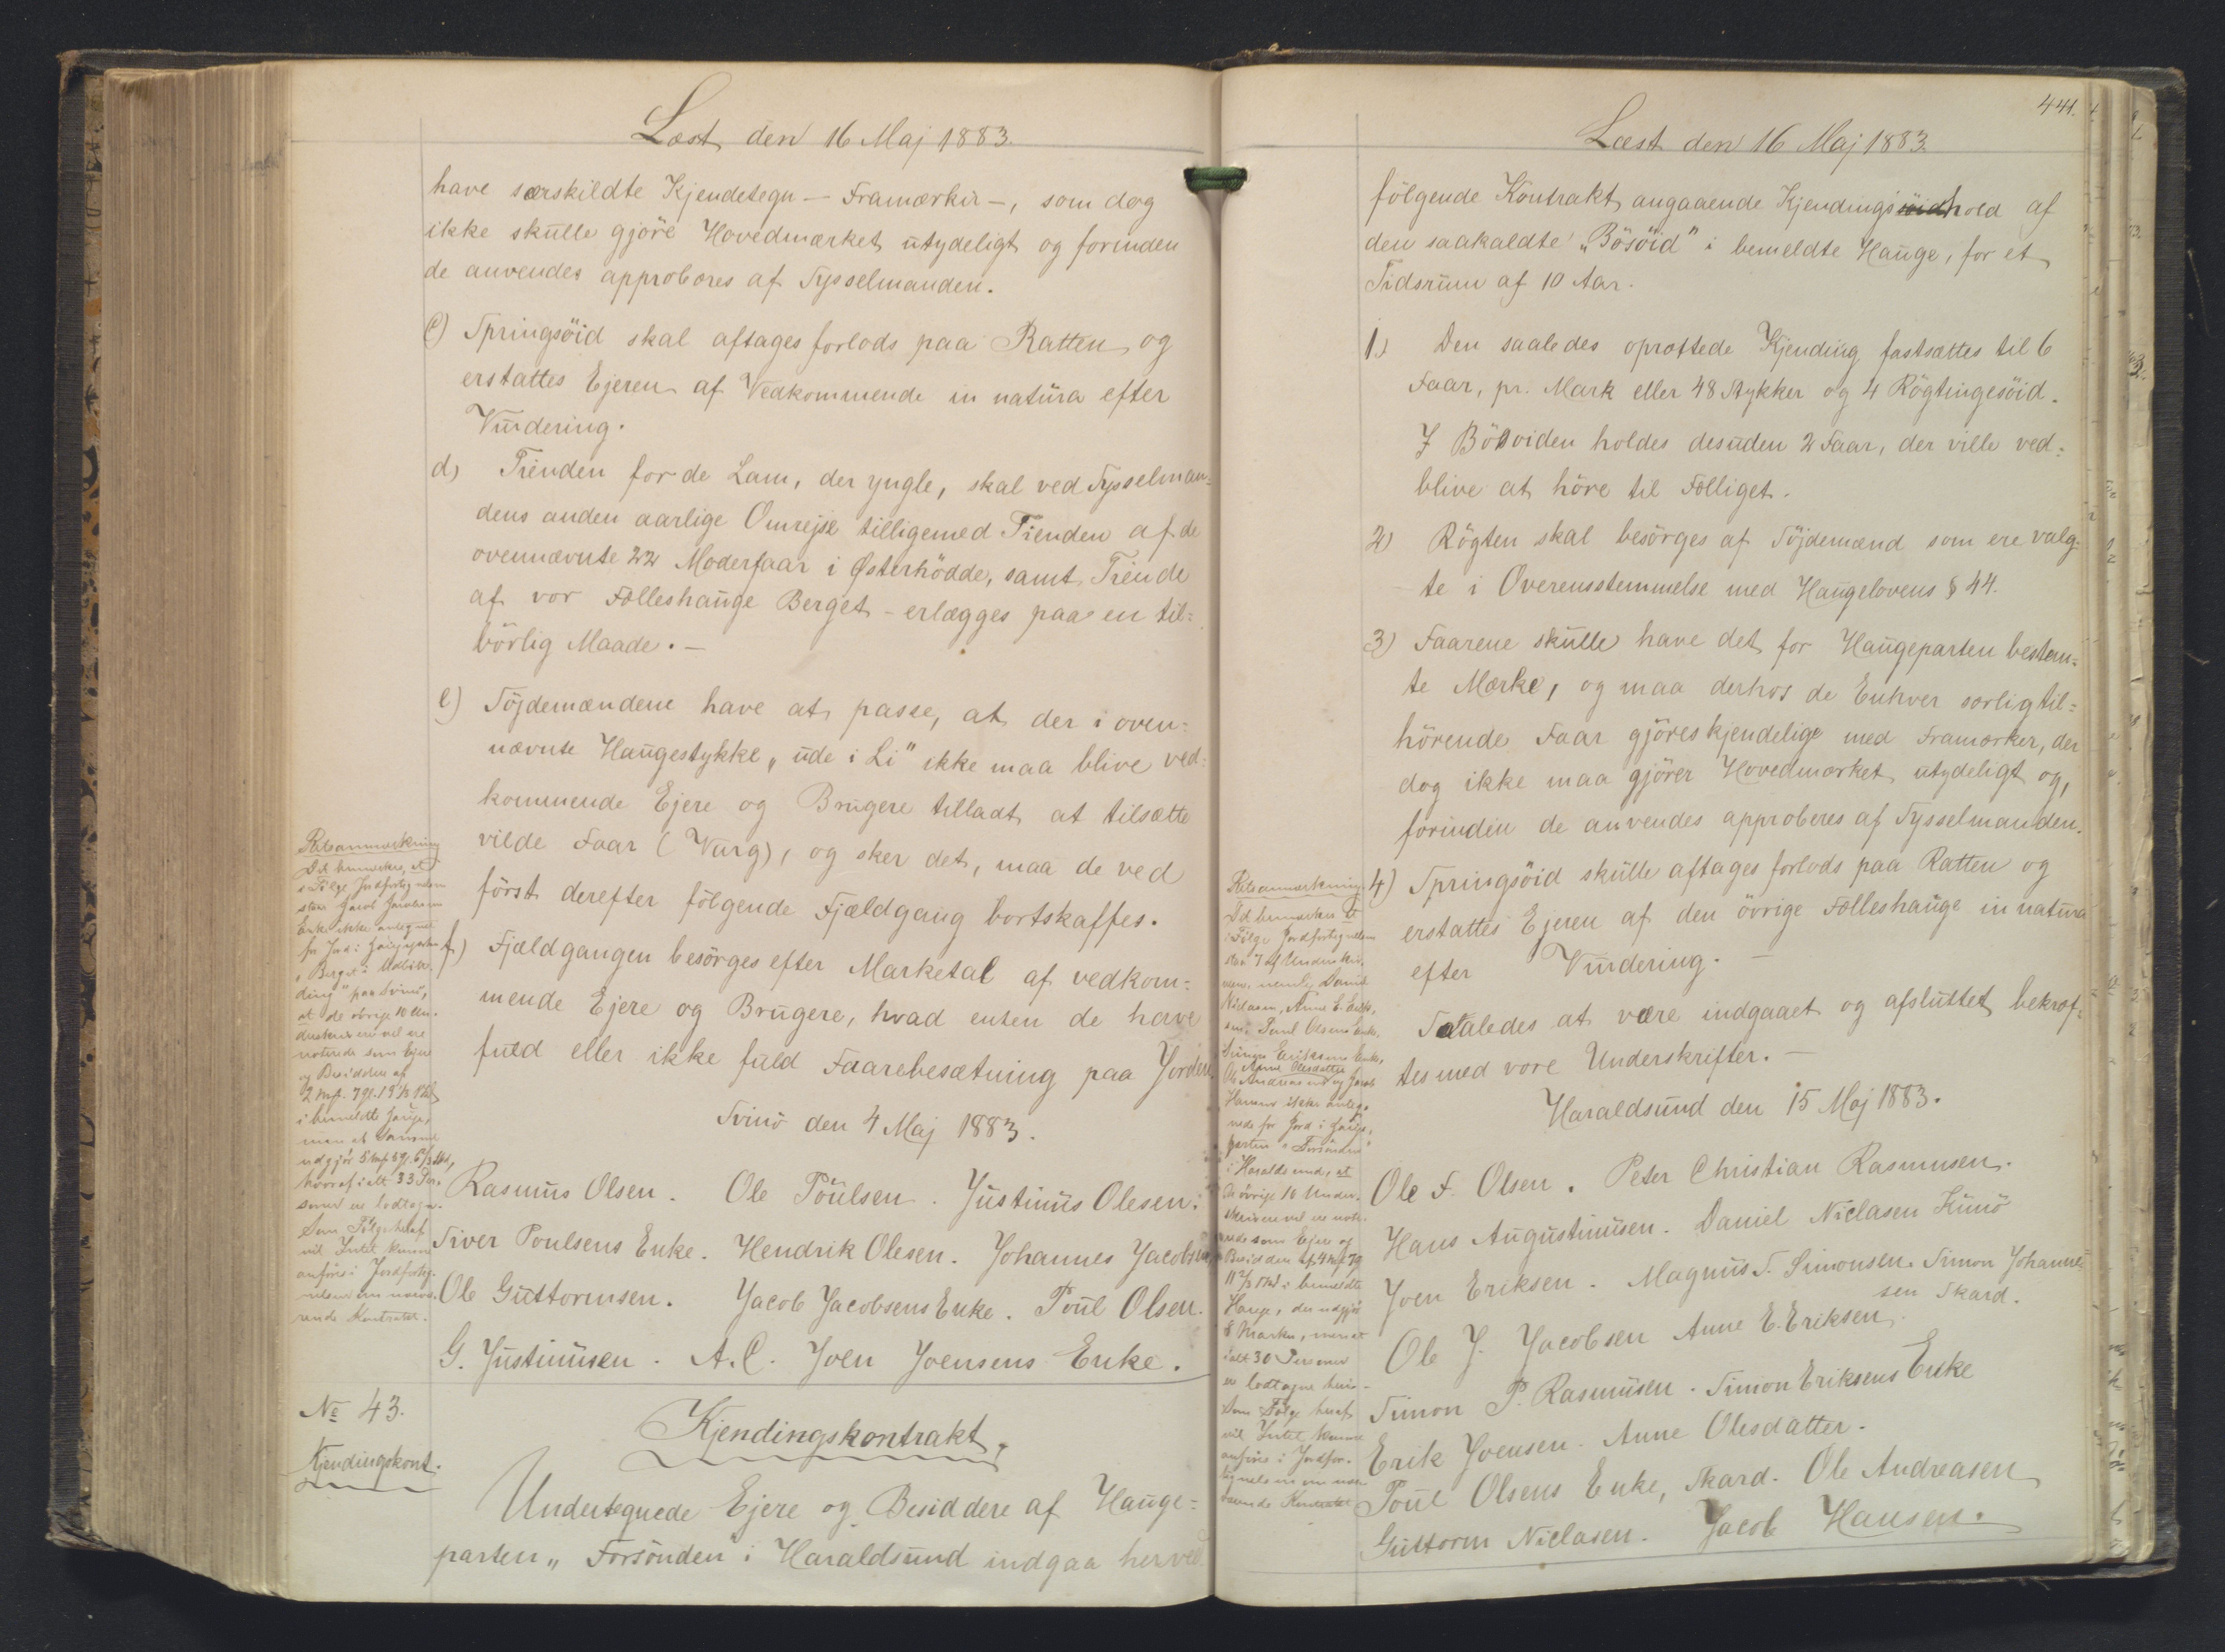 Læst den 16 Maj 1883.
have særskildte Kjendetegn – Framærkir –, som dog
ikke skulle gjöre Hovedmærket utydeligt og forinden
de anvendes approberes af Sysselmanden.
c) Springsöid skal aftages forlods paa Ratten og
erstattes Ejeren af Vedkommende in natura efter
Vurdering.
d) Tienden for de Lam, der yngle, skal ved Sysselman=
dens anden aarlige Omrejse tilligemed Tienden af de
ovennævnte 22 Moderfaar i Østerhödde, samt Tiende
af vor Fælleshauge Berget – erlægges paa en til=
börlig Maade. –
e) Töjdemændene have at passe, at der i oven=
nævnte Haugestykke „ude i Li" ikke maa blive ved=
kommende Ejere og Brugere tilladt at tilsætte
vilde Faar (Varg), og sker det, maa de ved
först derefter fölgende Fjældgang bortskaffes.
f) Fjældgangen besörges efter Marketal af vedkom=
mende Ejere og Brugere, hvad enten de have
fuld eller ikke fuld Faarebesætning paa Jorden.
Svinö den 4 Maj 1883.
Rasmus Olsen. Ole Poulsen. Justinus Olesen.
Siver Poulsens Enke. Hendrik Olesen. Johannes Jacobsen,
Ole Guttormsen. Jacob Jacobsens Enke. Poul Olsen.
G. Justinusen. A. C. Joen Joensens Enke.
Retsanmærkning
Det bemærkes, at
i Følge Jordfortegnelsen
Jacob Jacobsens
Enke ikke antegnet
for Jord i Haugeparten
i Berget
paa Svinö,
at de övrige 10 Un-
derskrivere vel ere
noterede som Ejere
og Besiddere af
2 Mk. 7 gl.
i bemeldte Hauge,
men at
udgjör 5 Mk
hvoraf i alt 33 Per-
soner ere lodtagne.
Som Fölge heraf
vil Intet kunne
anföres i Jordforteg-
nelsen om nærvæ-
rende Kontrakt.
No 43.
Kjendingskont.
Kjendingskontrakt.
Undertegnede Ejere og Besiddere af Hauge=
parten „Forsönden" i Haraldsund indgaa herved
441.
Læst den 16 Maj 1883.
fölgende Kontrakt angaaende Kjendingshold af
den saakaldte „Bösöid" i bemeldte Hauge, for et
Tidsrum af 10 Aar.
1.) Den saaledes oprettede Kjending fastsættes til 6
Faar, pr. Mark eller 48 Stykker og 4 Rögtingesöid.
I Bösoiden holdes desuden 2 Faar, der ville ved=
blive at höre til Fælliget.
2) Rögten skal besörges af Töjdemænd som ere valg=
te i Overensstemmelse med Haugelovens § 44.
3) Faarene skulle have det for Haugeparten bestem=
te Mærke, og maa derhos de Enhver særlig til=
hörende Faar gjöres kjendelige med Framærker, der
dog ikke maa gjörer Hovedmærket utydeligt og,
forinden de anvendes approberes af Sysselmanden.
4) Springsöid skulle aftages forlods paa Ratten og
erstattes Ejeren af den övrige Fælleshauge in natura
efter Vurdering. –
Saaledes at være indgaaet og afsluttet bekræf=
tes med vore Underskrifter. –
Haraldsund den 15 Maj 1883.
Ole F. Olsen. Peter Christian Rasmusen.
Hans Augustinusen. Daniel Niclasen Kunö
Joen Eriksen. Magnus S. Simonsen. Simon Johanne=
sen Skard.
Ole J. Jacobsen Anne E. Eriksen.
Simon P. Rasmusen. Simon Eriksens Enke
Erik Joensen. Anne Olesdatter.
Poul Olsens Enke, Skard. Ole Andreasen
Guttorm Niclasen. Jacob Hansen.
Retsanmærkning.
Det bemærkes at
i Fölge Jordfortegnelsen
ere 7 af Underskri-
verne, nemlig Daniel
Niclasen, Anne E. Erik-
sen, Poul Olsens Enke,
Simon Eriksens Enke,
Anne Olesdatter
Ole Andreasen og Jacob
Hansen ikke anteg-
nede for Jord i Hauge-
parten „Forsönden"
i Haraldsund, at
de övrige 10 Under-
skrivere vel ere note-
rede som Ejere og
Besiddere af 4 Mk 7 gl
i bemeldte
Hauge, der udgjör
8 Marker, men at
i alt 30 Personer
ere lodtagne heri –
Som Fölge heraf
vil Intet kunne
anföres i Jordfor-
tegnelsen om nær-
værende Kontrakt